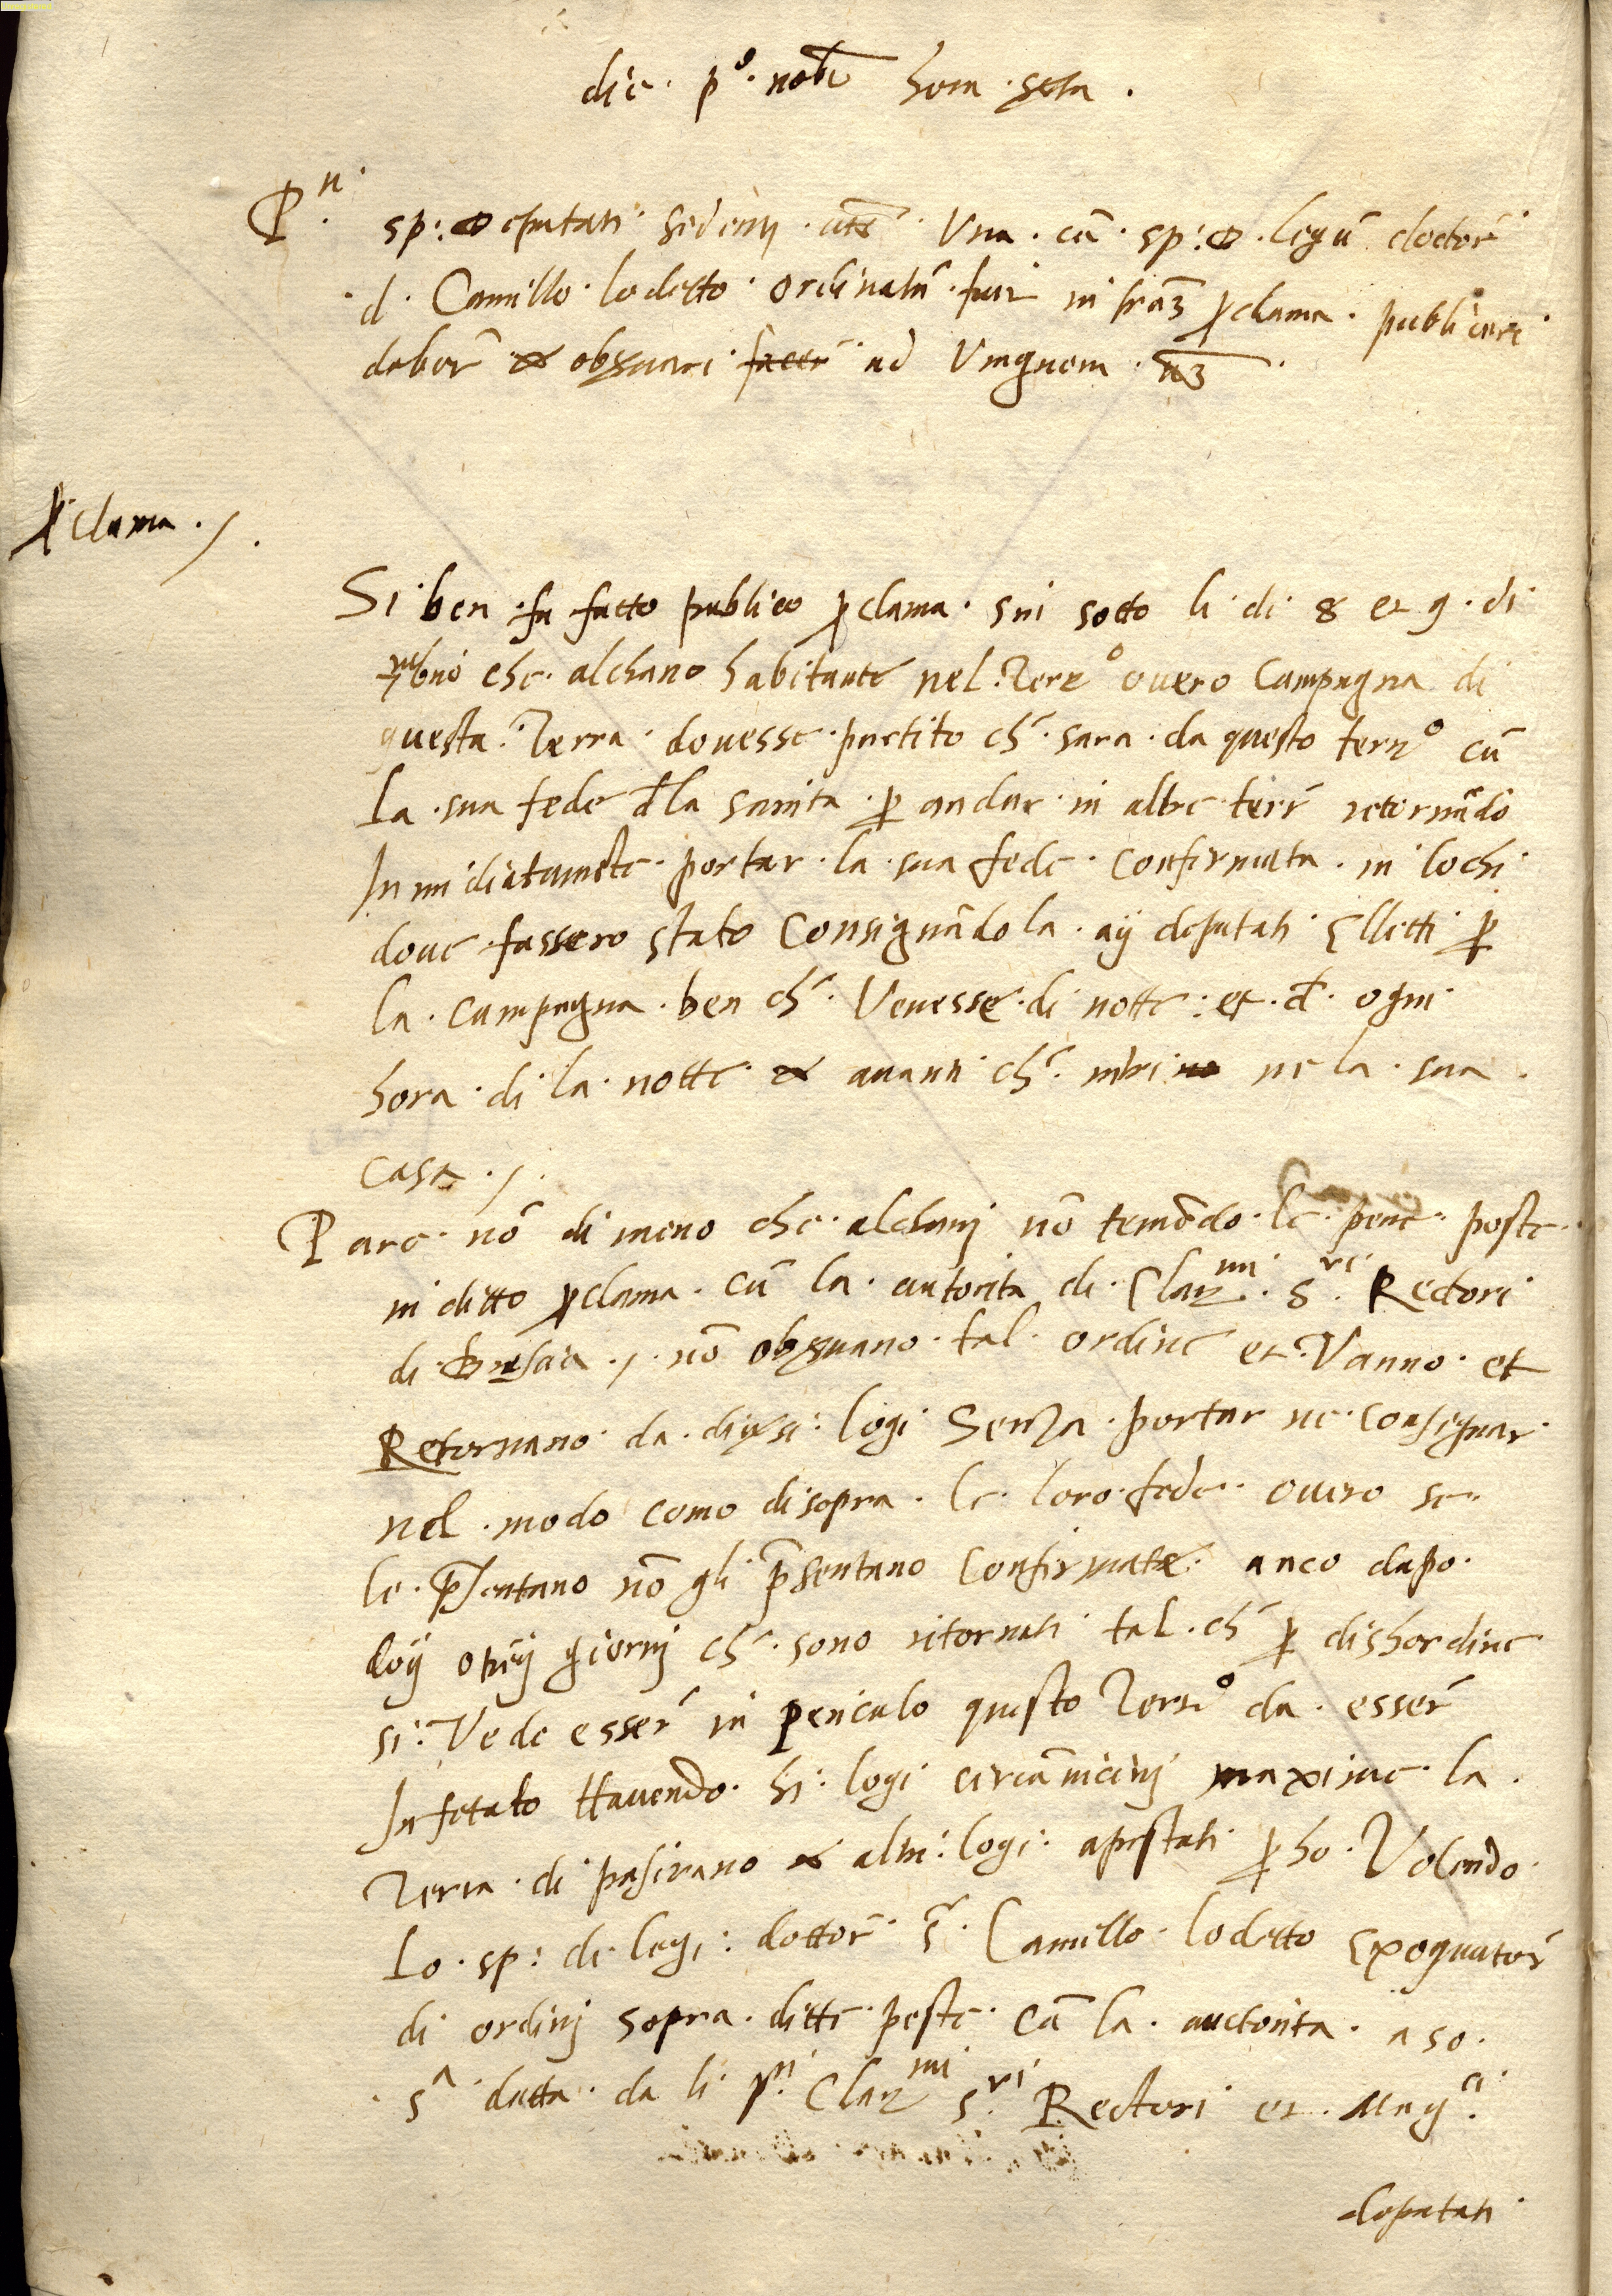 die. p.º nobr̃ hora sesta.
P.ⁿ sp: deputati sedenti utẽ Una. cũ. sp: D. legũ doctor̃
d. Camillo lodetto. ordinatũ fuit infraz pclama. publicari
deber̃ & obsuari facer̃ ad Ungnem.
pclama./.
Si ben fu fatto publico pclama. sui sotto li di. 8 et 9. di
che. alchuno habitante nel. Terr.º overo Campagna di
questa. Terra. dovesse. partito ch̃. sara. da questo terr.º cũ
la. sua fede d̃la sanita. p andar. in altre terr̃ retornãdo
Inmidiatamẽte. portar. la sua fede. Confirmata. in lochi
dove fassero stato Consignãdola. aij deputati Elletti p
la. campagna. ben ch̃. Venesse. di notte: et. d̃. ogni
hora. di la. notte & avanti ch̃. intri ne la. sua.
casa./.
Pare. nõ di meno che. alchunj nõ temẽdo. le pene. poste.
in ditto pclama. cũ la. autorita di. Clar.ᵐⁱ. S.ʳⁱ Rectori
di. Bressia./. nõ obsuano. tal. ordine et. Vanno. et
Retornano da. diversi: logi Senza. portar ne. Consegnar
nel. modo como disopra. le. loro. fede. overo se.
le. psentano nõ gli p̃sentano Confirmate. anco dapo.
doij o treij giornj ch̃. sono ritornati tal. ch̃ p dishordine
si: Vede esser̃ in periculo questo Terr.º da. esser̃
Infetato Havendo. hi: logi circũvicinj maxime. la.
Terra. di pasirano & altri: logi: apestati pho. Volendo.
Lo. sp: di legi: dottor̃. S.ʳ. Camillo. lodetto Exequutor̃
di ordinj sopra. ditte. peste. cũ la. auctorita. a so.
S.ᵃ datta. da li p.ⁿⁱ Clar.ᵐⁱ S.ʳⁱ Rectori et. Mag.ᶜⁱ
deputati